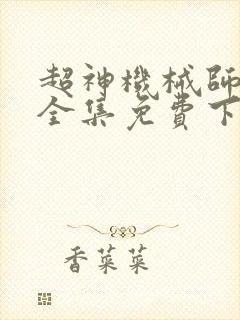 超神機械師
全集免費下
香菜菜